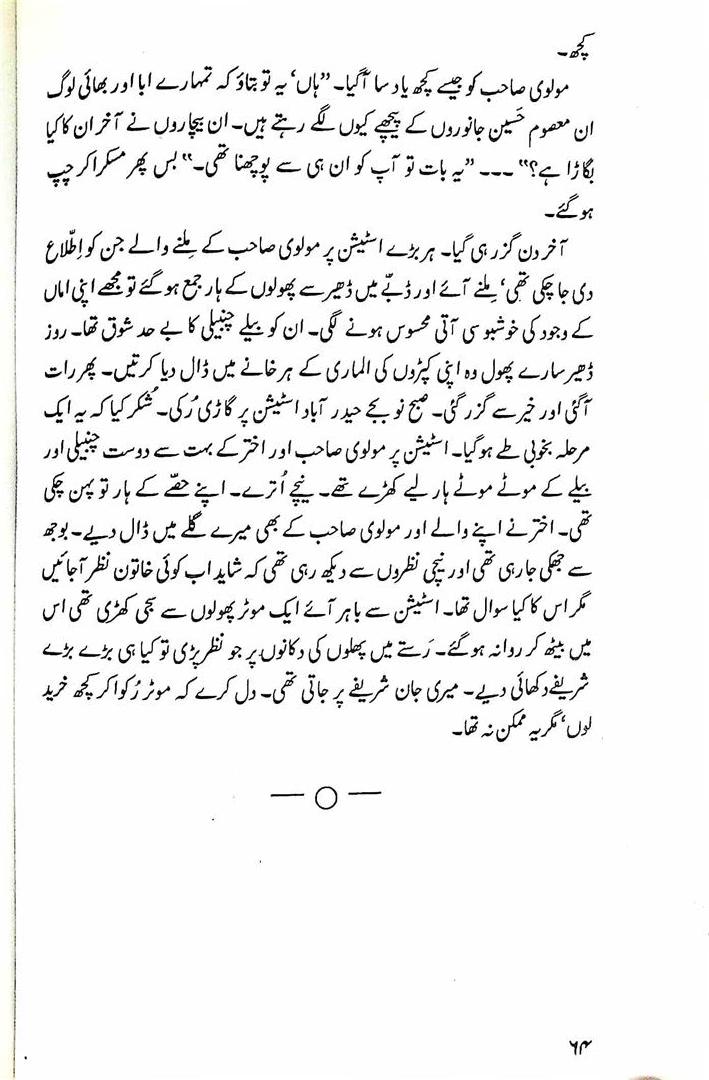 کچھ۔
مولوی صاحب کو جیسے کچھ یاد سا آگیا۔ ”ہاں‘ یہ تو بتاؤ کہ تمہارے ابا اور بھائی لوگ
ان معصوم حَسین جانوروں کے پیچھے کیوں لگے رہتے ہیں۔ ان بیچاروں نے آخر ان کا کیا
بگاڑا ہے؟“ ۔۔۔ ”یہ بات تو آپ کو ان ہی سے پوچھنا تھی۔“ بس پھر مسکرا کر چپ
ہو گئے۔
آخر دن گزر ہی گیا۔ ہر بڑے اسٹیشن پر مولوی صاحب کے مِلنے والے جن کو اِطّلاع
دی جا چکی تھی‘ مِلنے آئے اور ڈبّے میں ڈھیر سے پھولوں کے ہار جمع ہو گئے تو مجھے اپنی اماں
کے وجود کی خوشبو سی آتی محسوس ہونے لگی۔ ان کو بیلے چنبیلی کا بے حد شوق تھا۔ روز
ڈھیر سارے پھول وہ اپنی کپڑوں کی الماری کے ہر خانے میں ڈال دیا کرتیں۔ پھر رات
آگئی اور خیر سے گزر گئی۔ صبح نو بجے حیدر آباد اسٹیشن پر گاڑی رُکی۔ شُکر کیا کہ یہ ایک
مرحلہ بخوبی طے ہو گیا۔ اسٹیشن پر مولوی صاحب اور اختر کے بہت سے دوست چنبیلی اور
بیلے کے موٹے موٹے ہار لیے کھڑے تھے۔ نیچے اُترے۔ اپنے حصّے کے ہار تو پہن چکی
تھی۔ اختر نے اپنے والے اور مولوی صاحب کے بھی میرے گلے میں ڈال دیے۔ بوجھ
سے جھکی جا رہی تھی اور نیچی نظروں سے دیکھ رہی تھی کہ شاید اب کوئی خاتون نظر آجائیں
مگر اس کا کیا سوال تھا۔ اسٹیشن سے باہر آئے ایک موٹر پھولوں سے سجی کھڑی تھی اس
میں بیٹھ کر روانہ ہو گئے۔ رَستے میں پھلوں کی دکانوں پر جو نظر پڑی تو کیا ہی بڑے بڑے
شریفے دکھائی دیے۔ میری جان شریفے پر جاتی تھی۔ دل کرے کہ موٹر رُکوا کر کچھ خرید
لوں‘ مگر یہ ممکن نہ تھا۔
۶۴